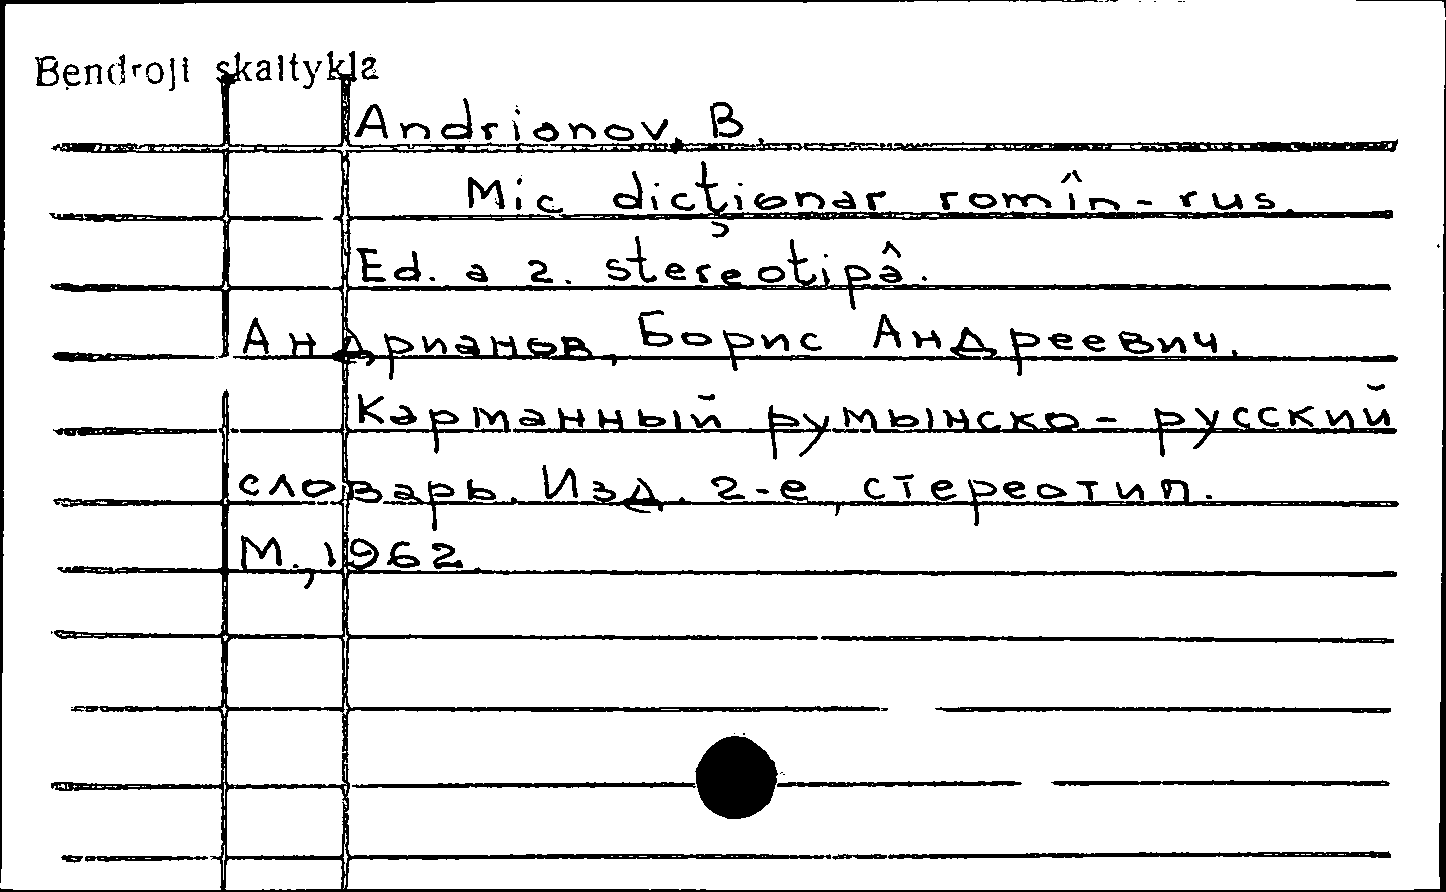 Bendroji skaitykla
Andrionov, B.
Mic dicţionar romîn-rus.
Ed. a 2. stereotipâ.
Андрианов, Борис Андреевич.
Карманный румынско-русский
словарь. Изд. 2-е, стереотип.
М., 1962.